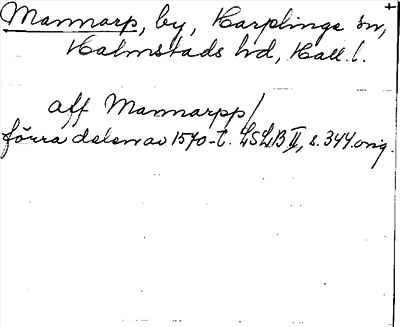 Mannarp, by, Harplinge sn,
Halmstads hd, Hall. l.
aff Mannarpp/
förra delen av 1570-t. LSLB II, s. 344. orig.